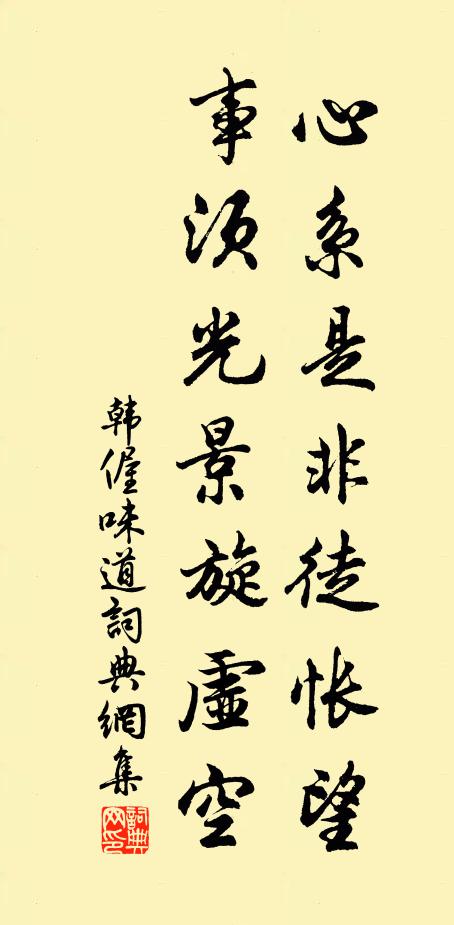 心系是非徒怅望
事须光景旋虚空
韩偓味道詞典網集
詞典网印